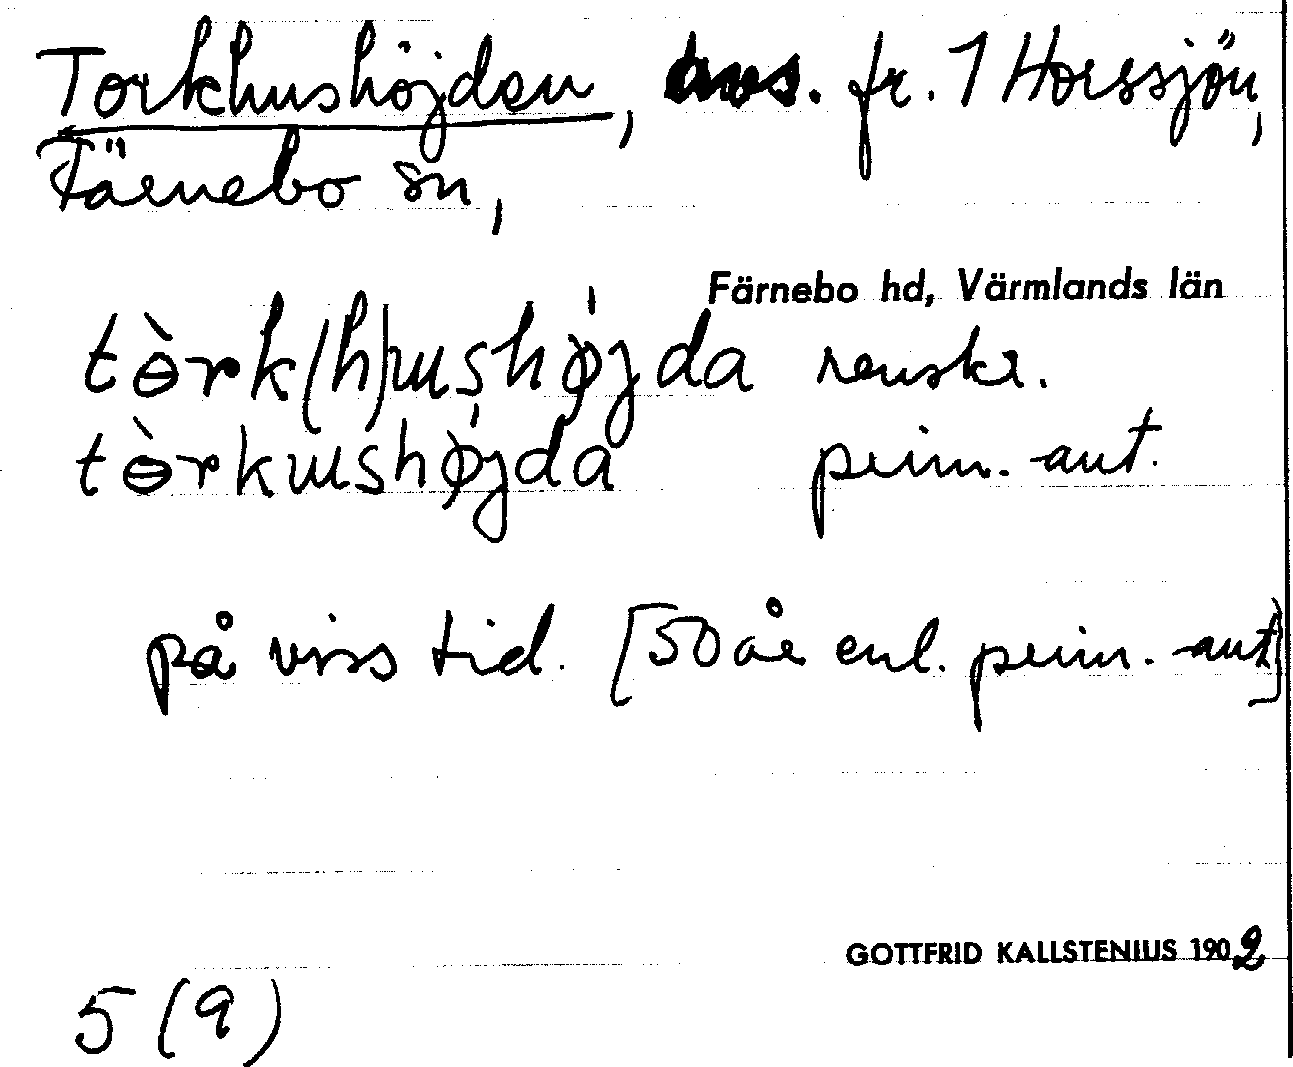 Torkhushöjden, avs. fr. 1 Horssjön,
Färnebo sn,
Färnebo hd, Värmlands län
tɵ̀rk(h)ɯshø̀jda renskr.
tɵ̀rkɯshø̀jda prim.-ant.
på viss tid. [50 år enl. prim.-ant]
GOTTFRID KALLSTENIUS 1902
5 (9)